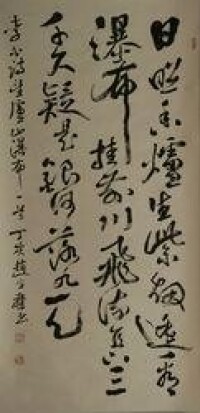 日照香爐生紫烟遥看
瀑布挂前川飛流直下三
千尺疑是銀河落九天
李白詩望廬山瀑布一首丁亥趙